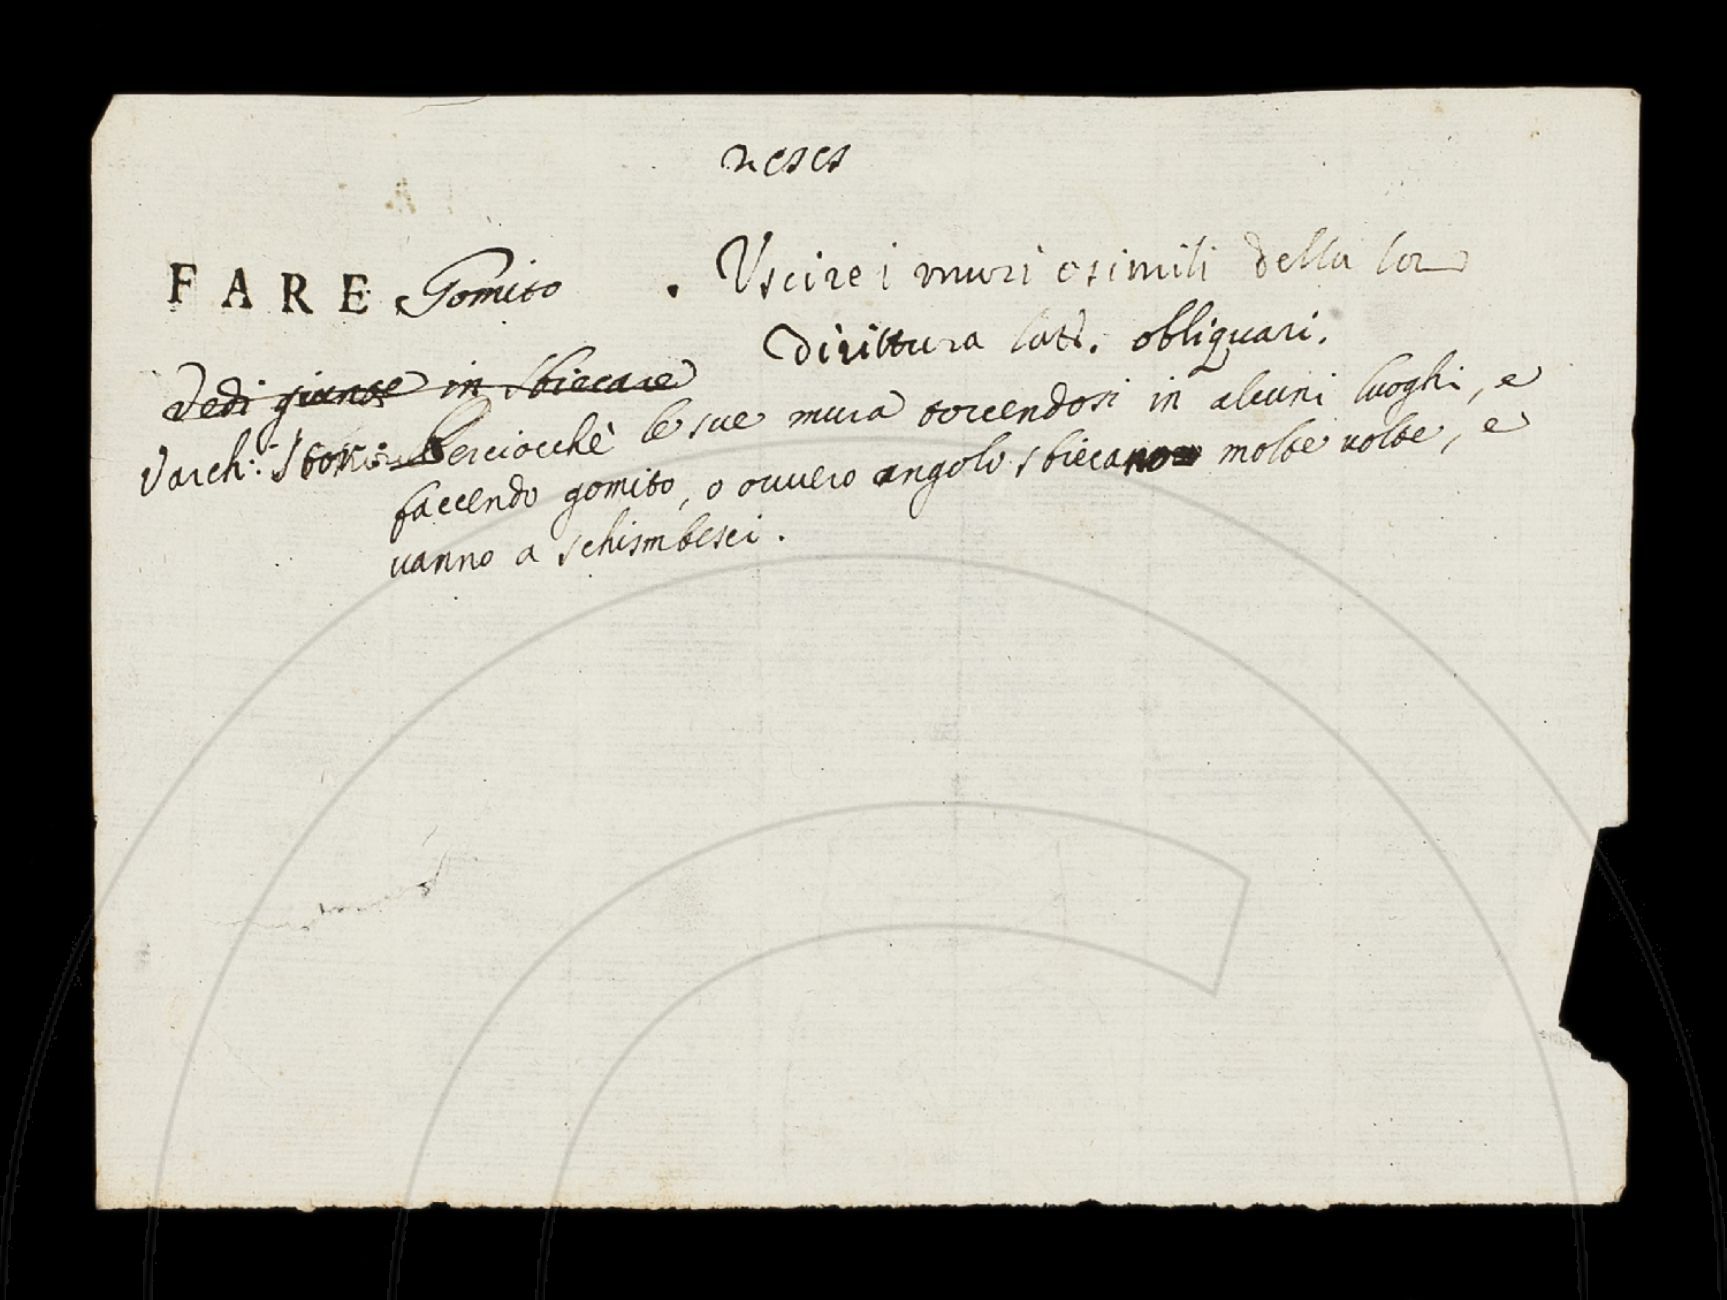 neses
FARE Gomito . Uscire i muri e simili della lor
dirittura latì. obliquari.
Vedi giunte in sbiecare
Varch: Stor: Perciocchè le sue mura torcendosi in alcuni luoghi, e
faccendo gomito, o ovvero angolo sbiecano molte volte, e
vanno a schimbesci.